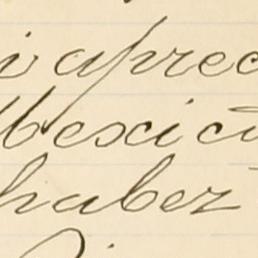 i aprec
Mexico
haber